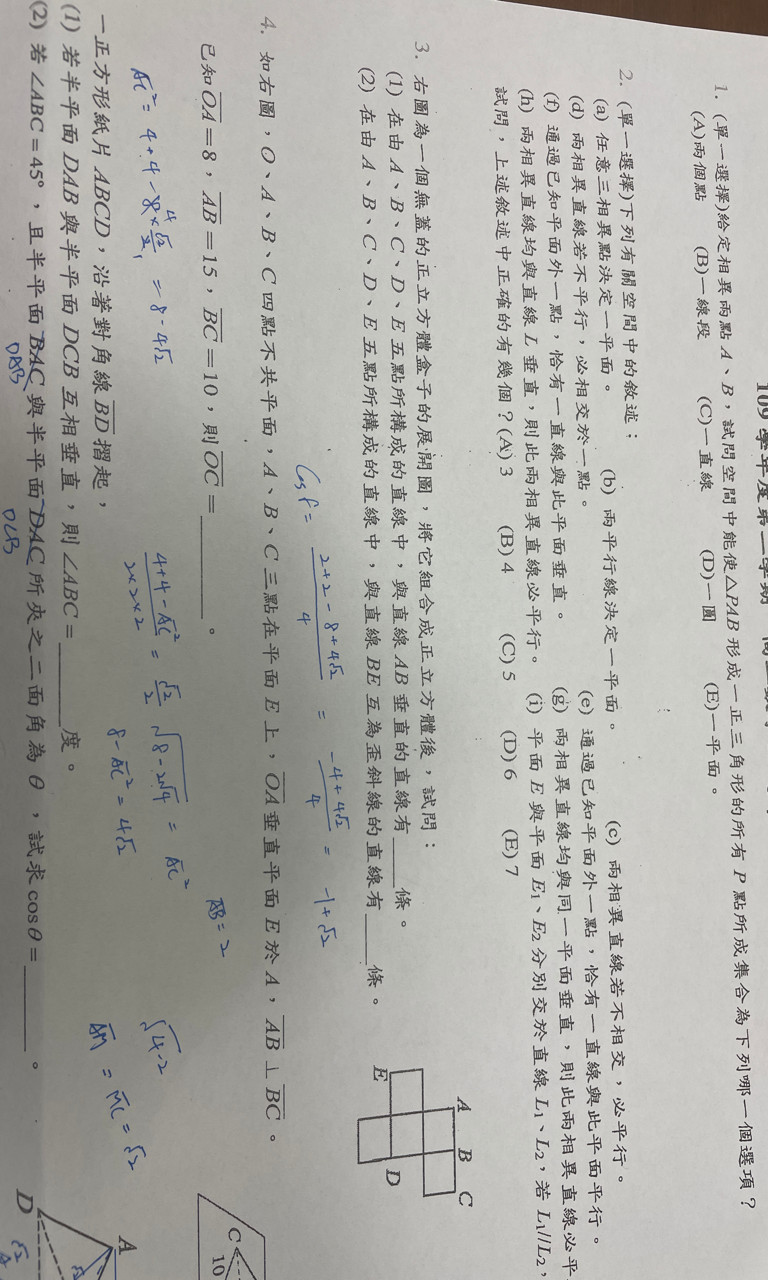 1. (單一選擇)給定相異兩點 A、B，試問空間中能使△PAB 形成一正三角形的所有 P 點所成集合為下列哪一個選項？
(A)兩個點 (B)一線段 (C)一直線 (D)一圓 (E)一平面。
2. (單一選擇)下列有關空間中的敘述：
(a) 任意三相異點決定一平面。 (b) 兩平行線決定一平面。 (c) 兩相異直線若不相交，必平行。
(d) 兩相異直線若不平行，必相交於一點。 (e) 通過已知平面外一點，恰有一直線與此平面平行。
(f) 通過已知平面外一點，恰有一直線與此平面垂直。 (g) 兩相異直線均與同一平面垂直，則此兩相異直線必平
(h) 兩相異直線均與直線 L 垂直，則此兩相異直線必平行。 (i) 平面 E 與平面 E₁、E₂ 分別交於直線 L₁、L₂，若 L₁//L₂，
試問，上述敘述中正確的有幾個？(A) 3 (B) 4 (C) 5 (D) 6 (E) 7
3. 右圖為一個無蓋的正立方體盒子的展開圖，將它組合成正立方體後，試問：
(1) 在由 A、B、C、D、E 五點所構成的直線中，與直線 AB 垂直的直線有____條。
(2) 在由 A、B、C、D、E 五點所構成的直線中，與直線 BE 互為歪斜線的直線有____條。
A B C
E D
cos θ = (2+2-8+4√2)/4 = (-4+4√2)/4 = -1+√2
4. 如右圖，O、A、B、C 四點不共平面，A、B、C 三點在平面 E 上，OA 垂直平面 E 於 A，AB ⊥ BC。
已知 OA = 8，AB = 15，BC = 10，則 OC = ________。
C 10
AB = 2
(4+4-AC²)/(2×2×2) = √2/2
8-AC² = 4√2
√4-2
AM = MC = √2
一正方形紙片 ABCD，沿著對角線 BD 摺起，
(1) 若半平面 DAB 與半平面 DCB 互相垂直，則∠ABC = ______度。
(2) 若∠ABC = 45°，且半平面 BAC 與半平面 DAC 所夾之二面角為 θ，試求 cos θ = ________。
DAB DCB
A
D